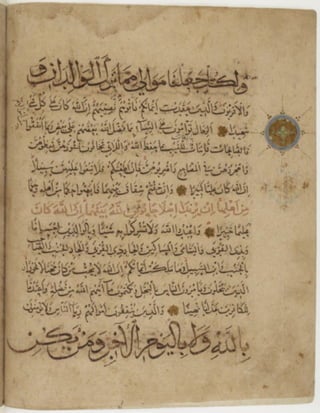 ولكل جعلنا موالي مما ترك الوالدان و
والاقربون والذين عقدت ايمانكم فاتوهم نصيبهم ان الله كان على كل شي
شهيدا الرجال قوامون على النسا بما فضل الله بعضهم على بعض وبما انفقوا
فالصالحات قانتات حافظات للغيب بما حفظ الله واللاتي تخافون نشوزهن فعظوهن
واهجروهن في المضاجع واضربوهن فان اطعنكم فلا تبغوا عليهن سبيلا
ان الله كان عليا كبيرا وان خفتم شقاق بينهما فابعثوا حكما من اهله وحكما
من اهلها ان يريدا اصلاحا يوفق الله بينهما ان الله كان
عليما خبيرا واعبدوا الله ولا تشركوا به شيئا وبالوالدين احسانا
وبذي القربى واليتامى والمساكين والجار ذي القربى والجار الجنب والصاحب
بالجنب وابن السبيل وما ملكت ايمانكم ان الله لا يحب من كان مختالا فخورا
الذين يبخلون ويامرون الناس بالبخل ويكتمون ما اتاهم الله من فضله واعتدنا
للكافرين عذابا مهينا والذين ينفقون اموالهم ريا الناس ولا يومنون
بالله ولا باليوم الاخر ومن يكن